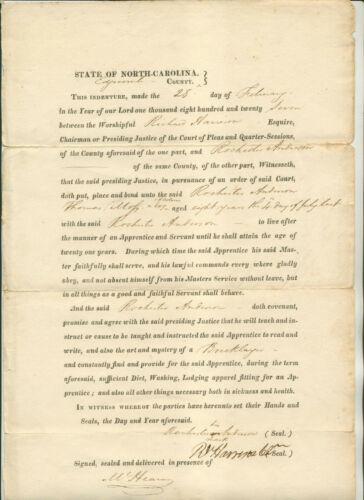 STATE OF NORTH-CAROLINA,
COUNTY.
THIS INDENTURE, made the 28 day of February
In the Year of our Lord one thousand eight hundred and twenty Seven
between the Worshipful Richard Harrison Esquire,
Chairman or Presiding Justice of the Court of Pleas and Quarter-Sessions,
of the County aforesaid of the one part, and Rochester Anderson
of the same County, of the other part, Witnesseth,
that the said presiding Justice, in pursuance of an order of said Court,
doth put, place and bond unto the said Rochester Anderson
Thomas aged eight years the day of July last
with the said Rochester Anderson to live after
the manner of an Apprentice and Servant until he shall attain the age of
twenty one years. During which time the said Apprentice his said Mas-
ter faithfully shall serve, and his lawful commands every where gladly
obey, and not absent himself from his Masters Service without leave, but
in all things as a good and faithful Servant shall behave.
And the said Rochester Anderson doth covenant,
promise and agree with the said presiding Justice that he will teach and in-
struct or cause to be taught and instructed the said Apprentice to read and
write, and also the art and mystery of a Bricklayer
and constantly find and provide for the said Apprentice, during the term
aforesaid, sufficient Diet, Washing, Lodging apparel fitting for an Ap-
prentice; and also all other things necessary both in sickness and health.
IN WITNESS WHEREOF the parties have hereunto set their Hands and
Seals, the Day and Year aforesaid.
his
Rochester Anderson (Seal.)
mark
(Seal.)
Signed, sealed and delivered in presence of